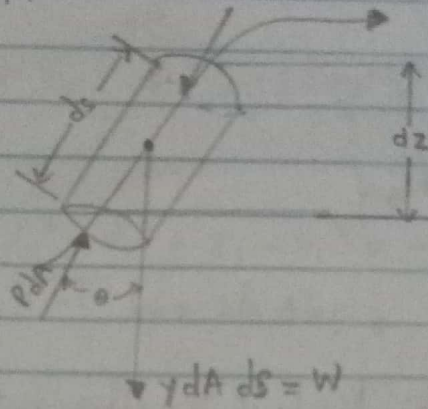 ds
dz
PdA
θ
γdA ds = W